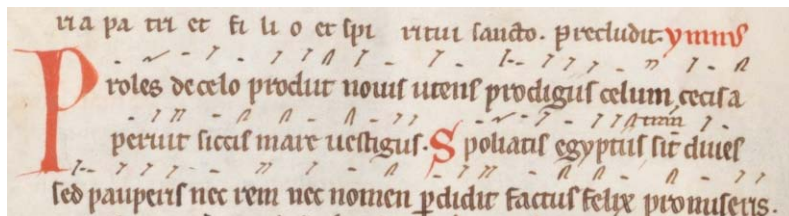 ria pa tri et fi li o et spi ritui sancto. precludit. ymnus
Proles de celo prodiit novis utens prodigiis celum cecis a
peruit siccis mare vestigiis. Spoliatis egyptiis sit dives
sed pauperis nec rem nec nomen perdidit factus felix pro miseris.